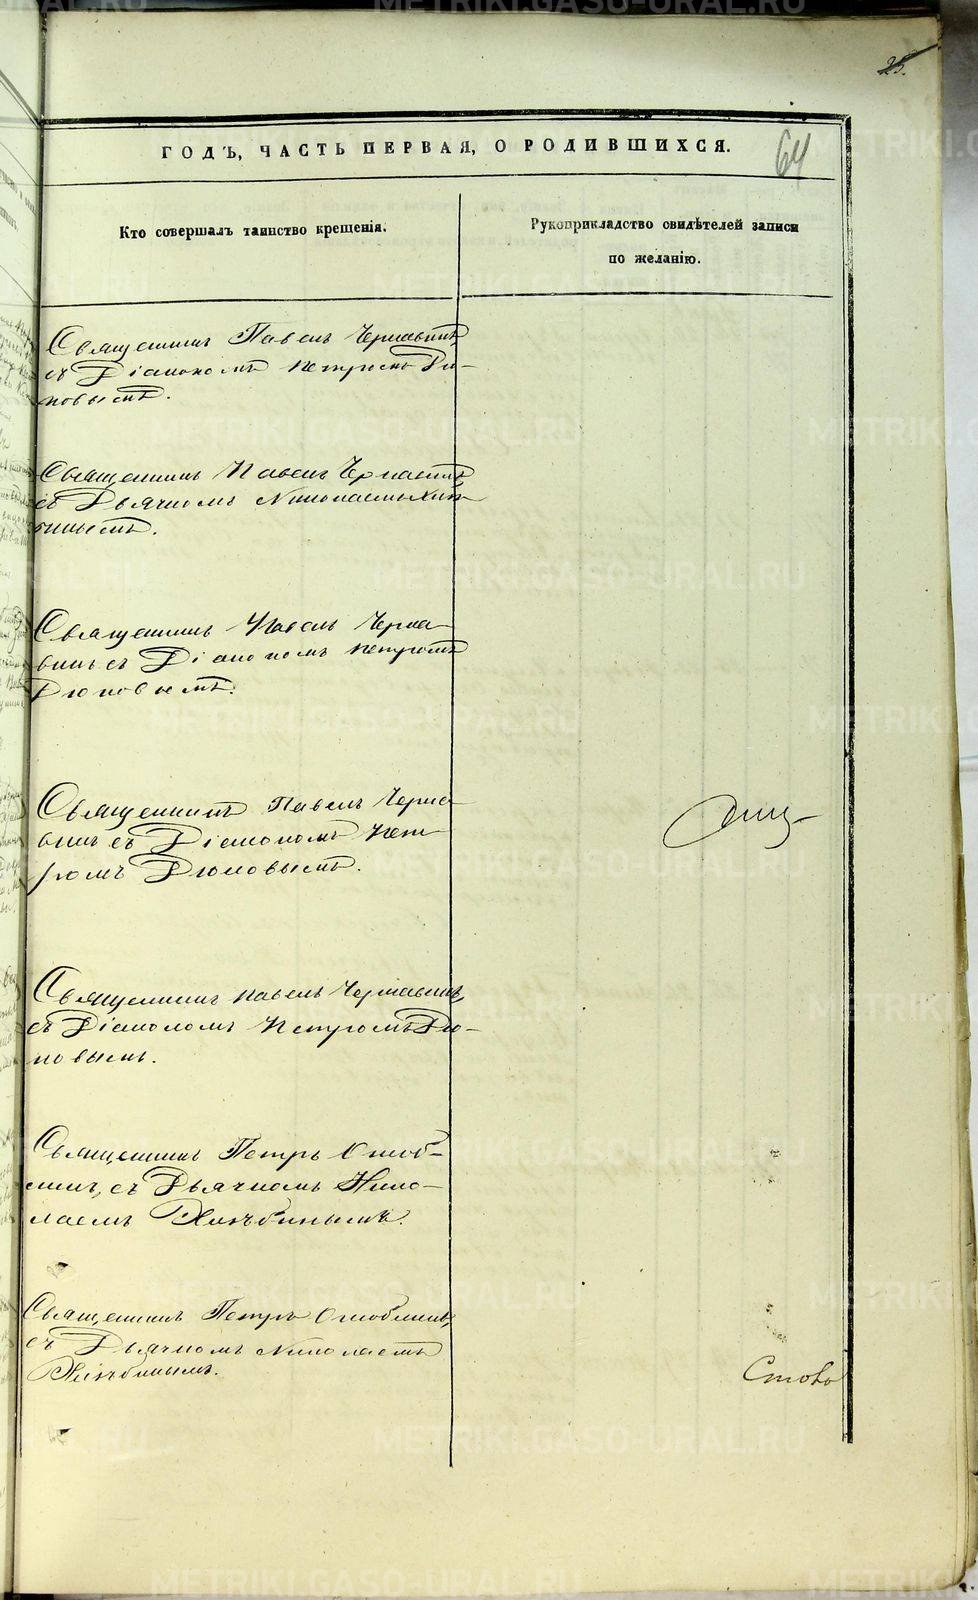 25.
64
ГОДЪ, ЧАСТЬ ПЕРВАЯ, О РОДИВШИХСЯ.
Кто совершалъ таинство крещенія.
Рукоприкладство свидѣтелей записи
по желанію.
Священникъ Павелъ Чернавинъ,
съ Діакономъ Петромъ Дю-
ковымъ.
Священникъ Павелъ Чернавинъ
съ Дьячкомъ Николаемъ Хлѣ-
бинымъ.
Священникъ Павелъ Черна-
винъ съ Діакономъ Петромъ
Дюковымъ.
Священникъ Павелъ Черна-
винъ съ Діакономъ Пет-
ромъ Дюковымъ.
Священникъ Павелъ Чернавинъ,
съ Діакономъ Петромъ Дю-
ковымъ.
Священникъ Петръ
съ Дьячкомъ Нико-
лаемъ Хлѣбинымъ.
Священникъ Петръ
съ Дьячкомъ Николаемъ
Хлѣбинымъ.
METRIKI.GASO-URAL.RU